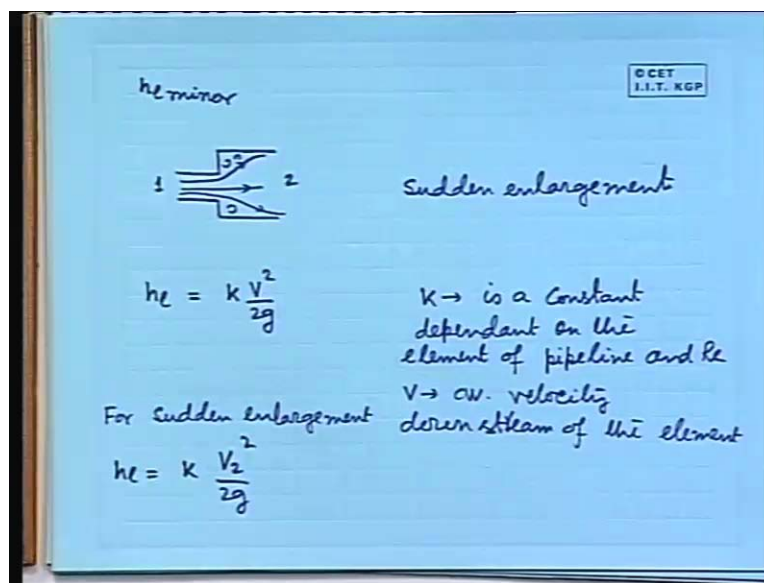 © CET
I.I.T. KGP
he minor
1
2
sudden enlargement
he = k V²/2g
K → is a constant
dependant on the
element of pipeline and Re
V → av. velocity
down stream of the element
For sudden enlargement
he = k V₂²/2g